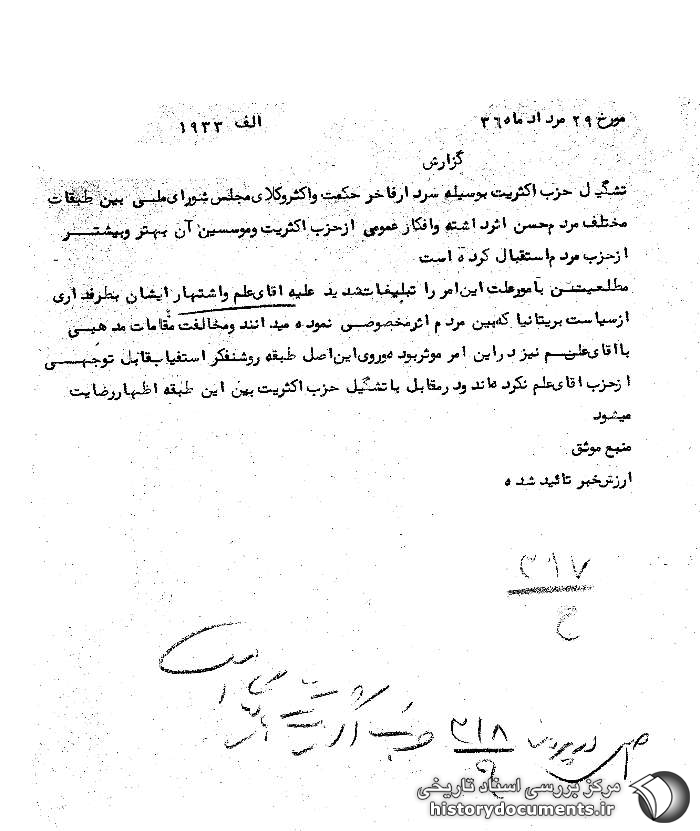 مورخ ۲۹ مرداد ماه ۳۶
الف ۱۹۳۳
گزارش
تشگیل حزب اکثریت بوسیله سردارفاخر حکمت واکثروکلای مجلس شورای ملی بین طبقات
مختلف مردم حسن اثرداشته وافکار عمومی ازحزب اکثریت وموسسین آن بهتر وبیشتر
ازحزب مردم استقبال کرده است
مطلعین بامور علت این امر را تبلیغات شدید علیه اقای علم واشتهار ایشان بطرفداری
ازسیاست بریتانیا که بین مردم اثر مخصوصی نموده میدانند ومخالفت مقامات مذهبی
با اقای علم نیز دراین امر موثربوده وروی این اصل طبقه روشنفکر استقبال قابل توجهی
ازحزب اقای علم نکرده اند ودرمقابل باتشگیل حزب اکثریت بین این طبقه اظهاررضایت
میشود
منبع موثق
ارزش خبر تائید شده
۳۱۷
ح
اصل در پرونده ۳۱۸ حزب اکثریت
ح
است
مرکز بررسی اسناد تاریخی
historydocuments.ir